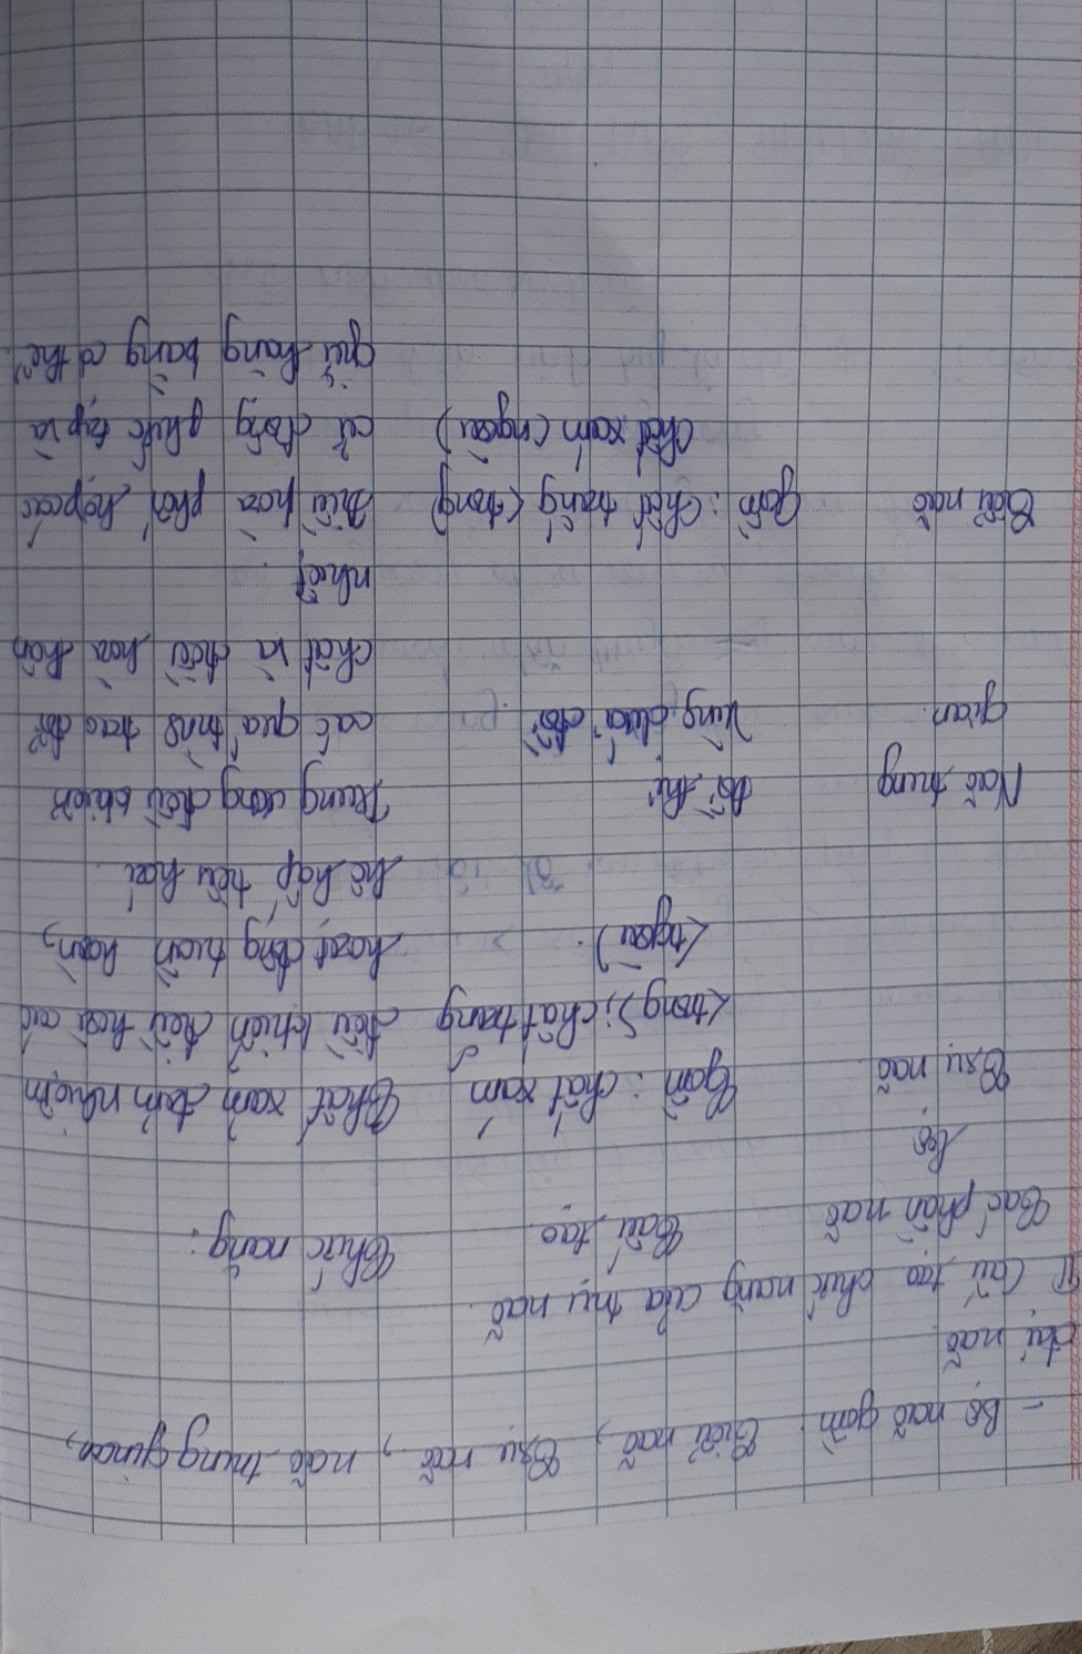 - Bộ não gồm: Tiểu não, Trụ não, não trung gian,
đại não
II Cấu tạo chức năng của trụ não
Các phần não Cấu tạo Chức năng:
bộ
Trụ não Gồm: chất xám Chất xám đảm nhiệm
(trong); chất trắng điều khiển điều hoà các
(ngoài). hoạt động tuần hoàn,
hô hấp, tiêu hoá.
Não trung đồi thị Trung ương điều khiển
gian vùng dưới đồi các quá trình trao đổi
chất và điều hoà thân
nhiệt.
Tiểu não Gồm: chất trắng (trong) Điều hoà phối hợp các
chất xám (ngoài) cử động phức tạp và
giữ thăng bằng cơ thể.